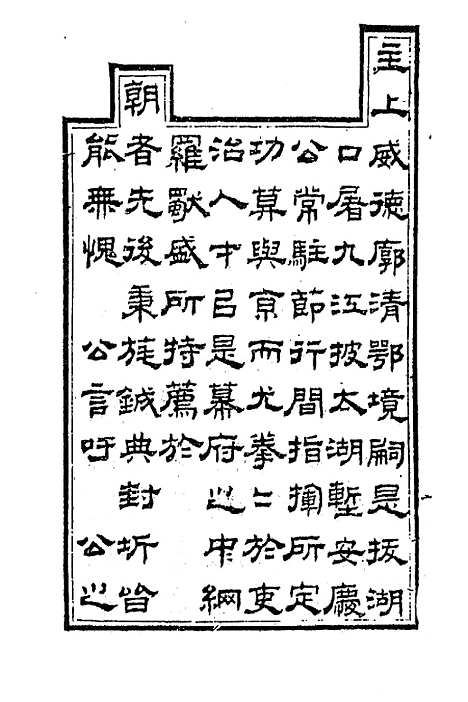 主上威德廓清鄂境嗣是拔湖
口屠九江披太湖塹安慶
公常駐節行間指揮所定
功莫與京而尤拳〻於吏
治人才㠯是幕府之中網
羅盛所持薦於
朝者先後秉旄鉞典封圻皆
能無愧 公言吁 公之